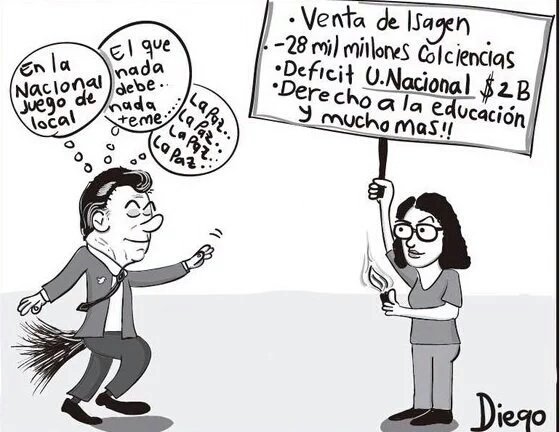 En la
Nacional
juego de
local
El que
nada
debe..
nada
teme....
La Paz..
La Paz..
La Paz..
La Paz...
• Venta de Isagen
-28 mil millones Colciencias
• Deficit U.Nacional $2B
• Derecho a la educación
y mucho mas!!
Diego